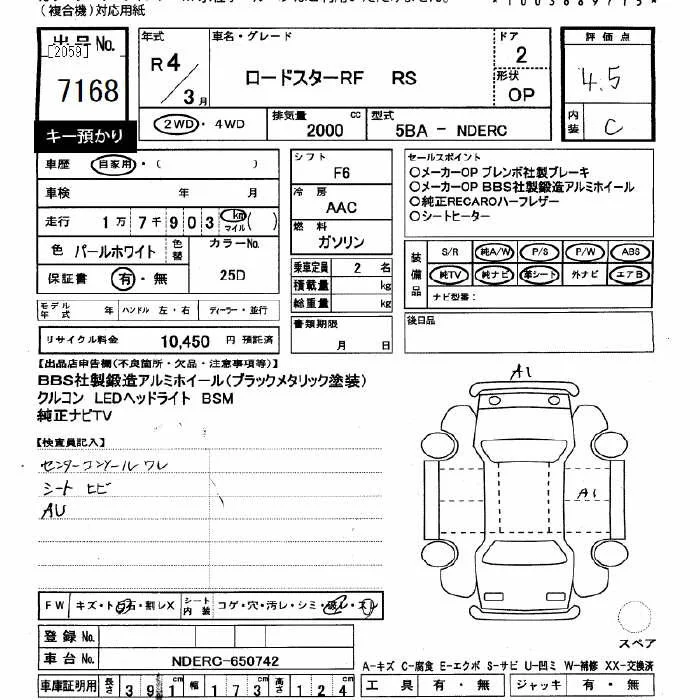 (複合機)対応用紙
*1003689715*
出品 No.
[2059]
7168
キー預かり
年式
R4/3月
車名・グレード
ロードスターRF RS
ドア
2
形状
OP
評価点
4.5
内装
C
2WD・4WD
排気量 2000 cc
型式 5BA - NDERC
車歴 自家用・( )
車検 年 月
走行 1万7千903 km マイル ( )
色 パールホワイト 色替
カラーNo. 25D
保証書 有・無
シフト
F6
冷房
AAC
燃料
ガソリン
乗車定員 2 名
積載量 kg
総重量 kg
書類期限
月 日
セールスポイント
○メーカーOP ブレンボ社製ブレーキ
○メーカーOP BBS社製鍛造アルミホイール
○純正RECAROハーフレザー
○シートヒーター
装備品
S/R 純A/W P/S P/W ABS
純TV 純ナビ 革シート 外ナビ エアB
ナビ型番:
後日品
モデル年式 年 ハンドル 左・右 ディーラー・並行
リサイクル料金 10,450 円 預託済
【出品店申告欄(不良箇所・欠品・注意事項等)】
BBS社製鍛造アルミホイール(ブラックメタリック塗装)
クルコン LEDヘッドライト BSM
純正ナビTV
【検査員記入】
センターコンソールワレ
シート ヒビ
AU
A1
A1
スペア
FW キズ・ト白石・割レX シート内装 コゲ・穴・汚レ・シミ・破レ・スレ
登録 No.
車台 No. NDERC-650742
A-キズ C-腐食 E-エクボ S-サビ U-凹ミ W-補修 XX-交換済
車庫証明用 長さ 391cm 幅 173cm 高さ 124cm
工具 有・無 ジャッキ 有・無